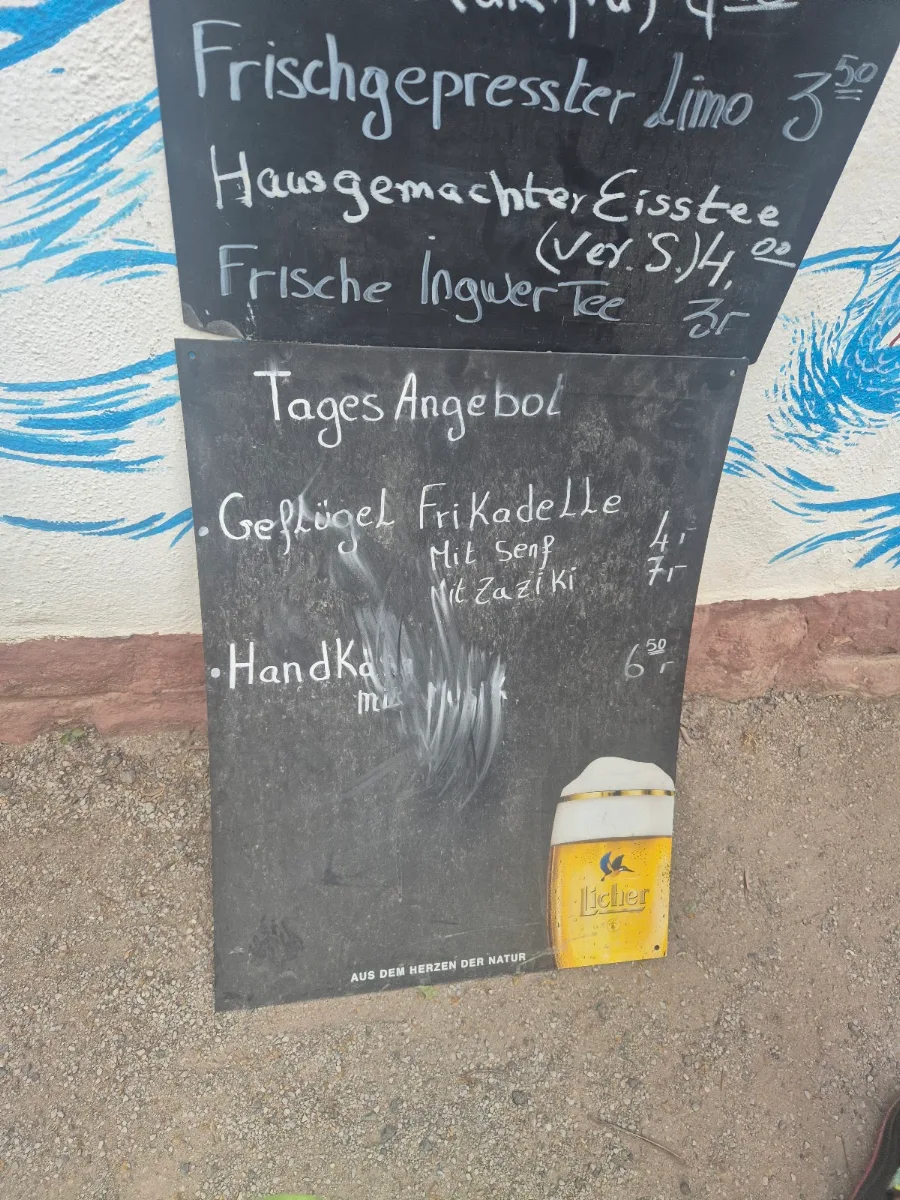 Frischgepresster Limo 3 50
Hausgemachter Eisstee
(Ver. S.) 4, 00
Frische Ingwer Tee 3,-
Tages Angebot
• Geflügel Frikadelle
Mit Senf 4,-
Mit Zaziki 7,-
• HandKä 6 50 ,-
mit Musik
Licher
AUS DEM HERZEN DER NATUR